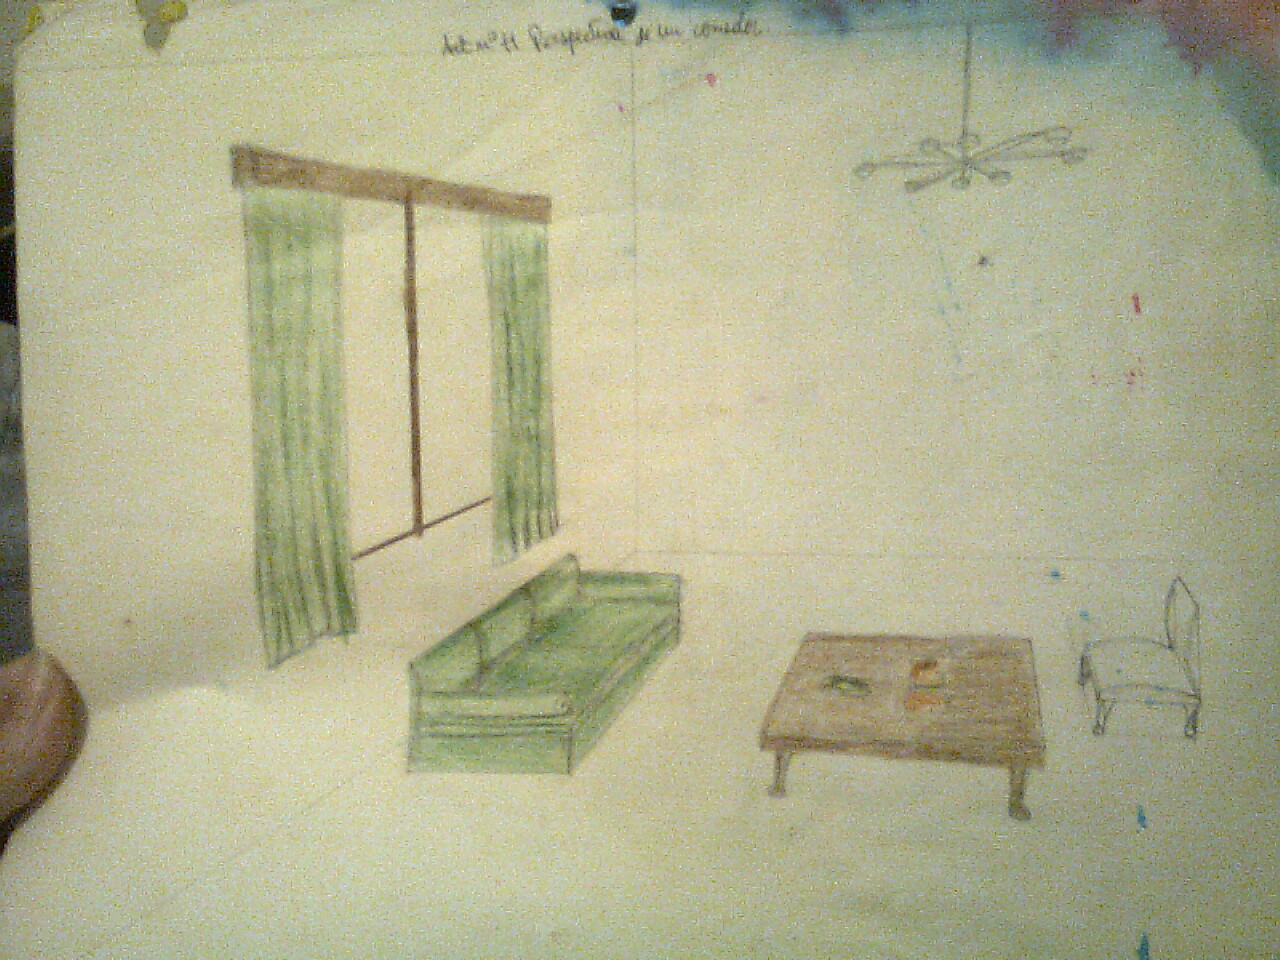 Act nº 11 Perspectiva de un comedor.